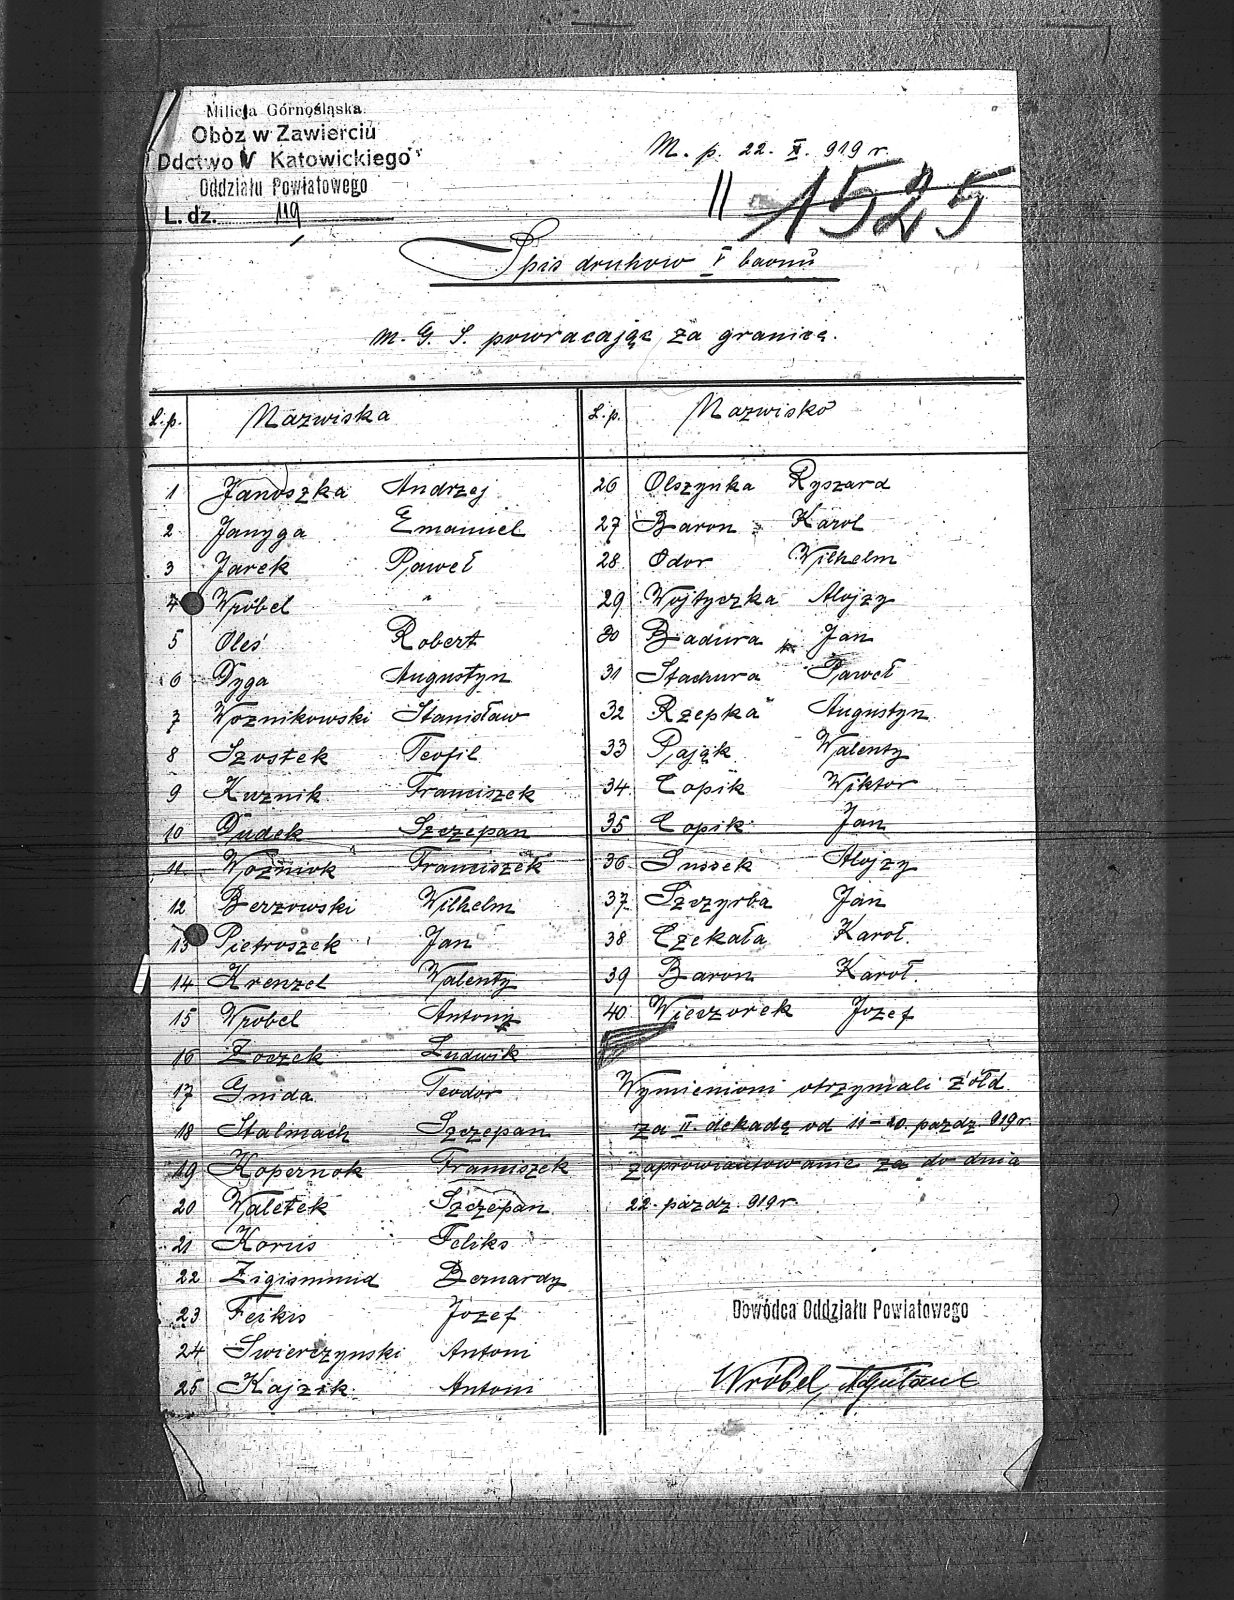 Milicja Górnośląska
Obóz w Zawierciu
Ddctwo V Katowickiego
Oddziału Powiatowego
L. dz. 119
M. p. 22. X. 919 r.
1525
Spis druhów V baonu
M. G. S. powracając za granicę.
L.p. Nazwiska
1 Janoszka Andrzej
2 Janyga Emanuel
3 Jarek Paweł
4 Wróbel "
5 Oleś Robert
6 Dyga Augustyn
7 Woznikowski Stanisław
8 Szostek Teofil
9 Kuznik Franciszek
10 Dudek Szczepan
11 Wozniok Franciszek
12 Berzowski Wilhelm
13 Pietroszek Jan
14 Krenzel Walenty
15 Wrobel Antony
16 Zoczek Ludwik
17 Gnida Teodor
18 Stalmach Szczepan
19 Kopernok Franciszek
20 Waletek Szczepan
21 Korus Feliks
22 Zigismund Bernardy
23 Feikis Józef
24 Swierczynski Antoni
25 Kajzik Antoni
L.p. Nazwisko
26 Olszynka Ryszard
27 Baron Karol
28 Odor Wilhelm
29 Wojtyczka Alojzy
30 Badura Jan
31 Stachura Paweł
32 Rzepka Augustyn
33 Pająk Walenty
34 Copik Wiktor
35 Copik Jan
36 Sussek Alojzy
37 Szczyrba Jan
38 Czekała Karol.
39 Baron Karol.
40 Wieczorek Jozef
Wymienioni otrzymali żółd
za II. dekadę od 11-20. pazdz. 919 r.
zaprowiantowanie za do dnia
22. pazdz. 919 r.
Dowódca Oddziału Powiatowego
Wróbel, Adjutant